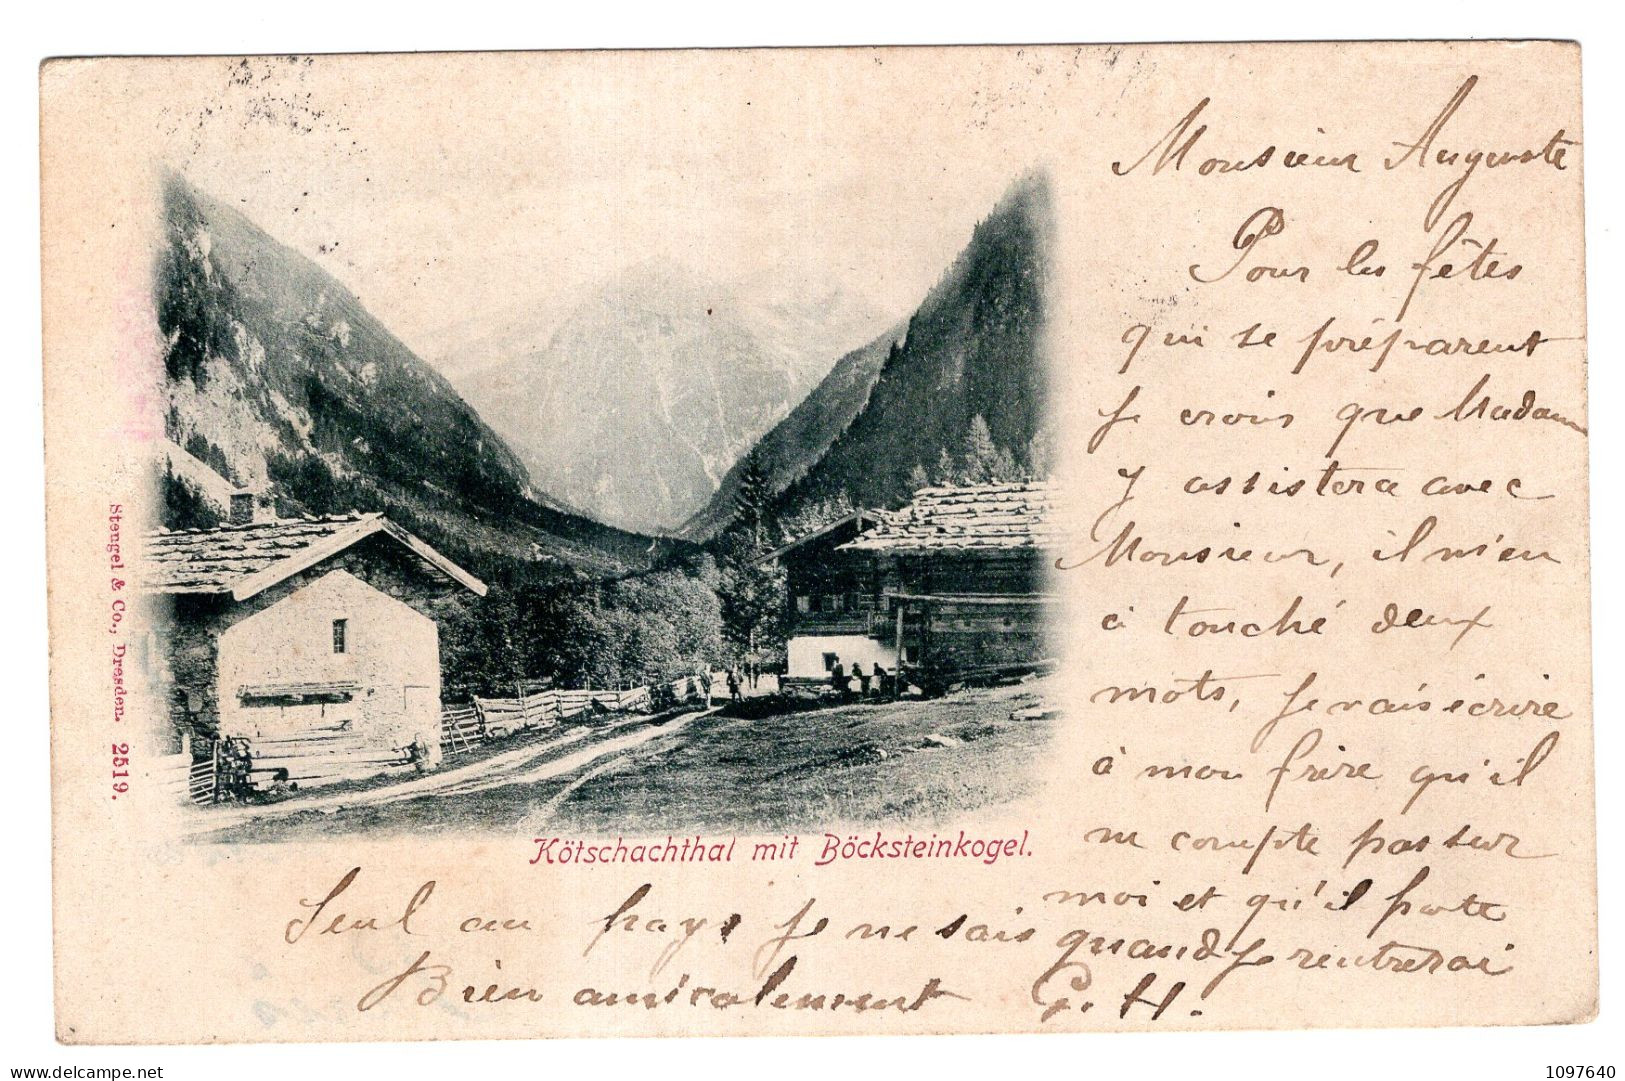 Monsieur Auguste
Pour les fêtes
qui se préparent
Je crois que Madame
Y assistera avec
Monsieur, il m'en
a touché deux
mots, Je vais écrire
à mon frère qu'il
ne compte pas sur
moi et qu'il parte
Seul au pays Je ne sais quand Je rentrerai
Bien amicalement G. H.
Kötschachthal mit Böcksteinkogel.
Stengel & Co., Dresden. 2519.
delcampe.net
1097640